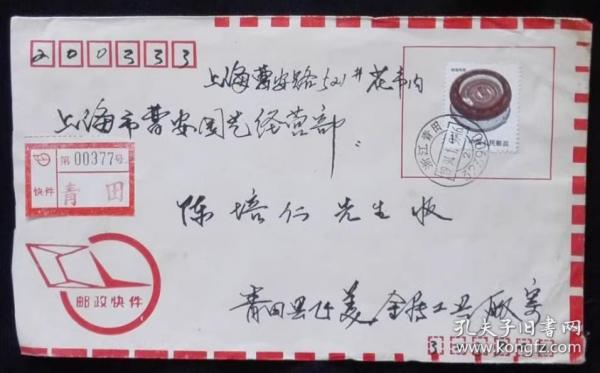 200333
上海曹安路521#花市内
上海市曹安园艺经营部
第00377号
快件
青田
陈培仁 先生 收
邮政快件
青田县 美 工艺 厂 寄
浙江青田
孔夫子旧书网
www.kongfz.com